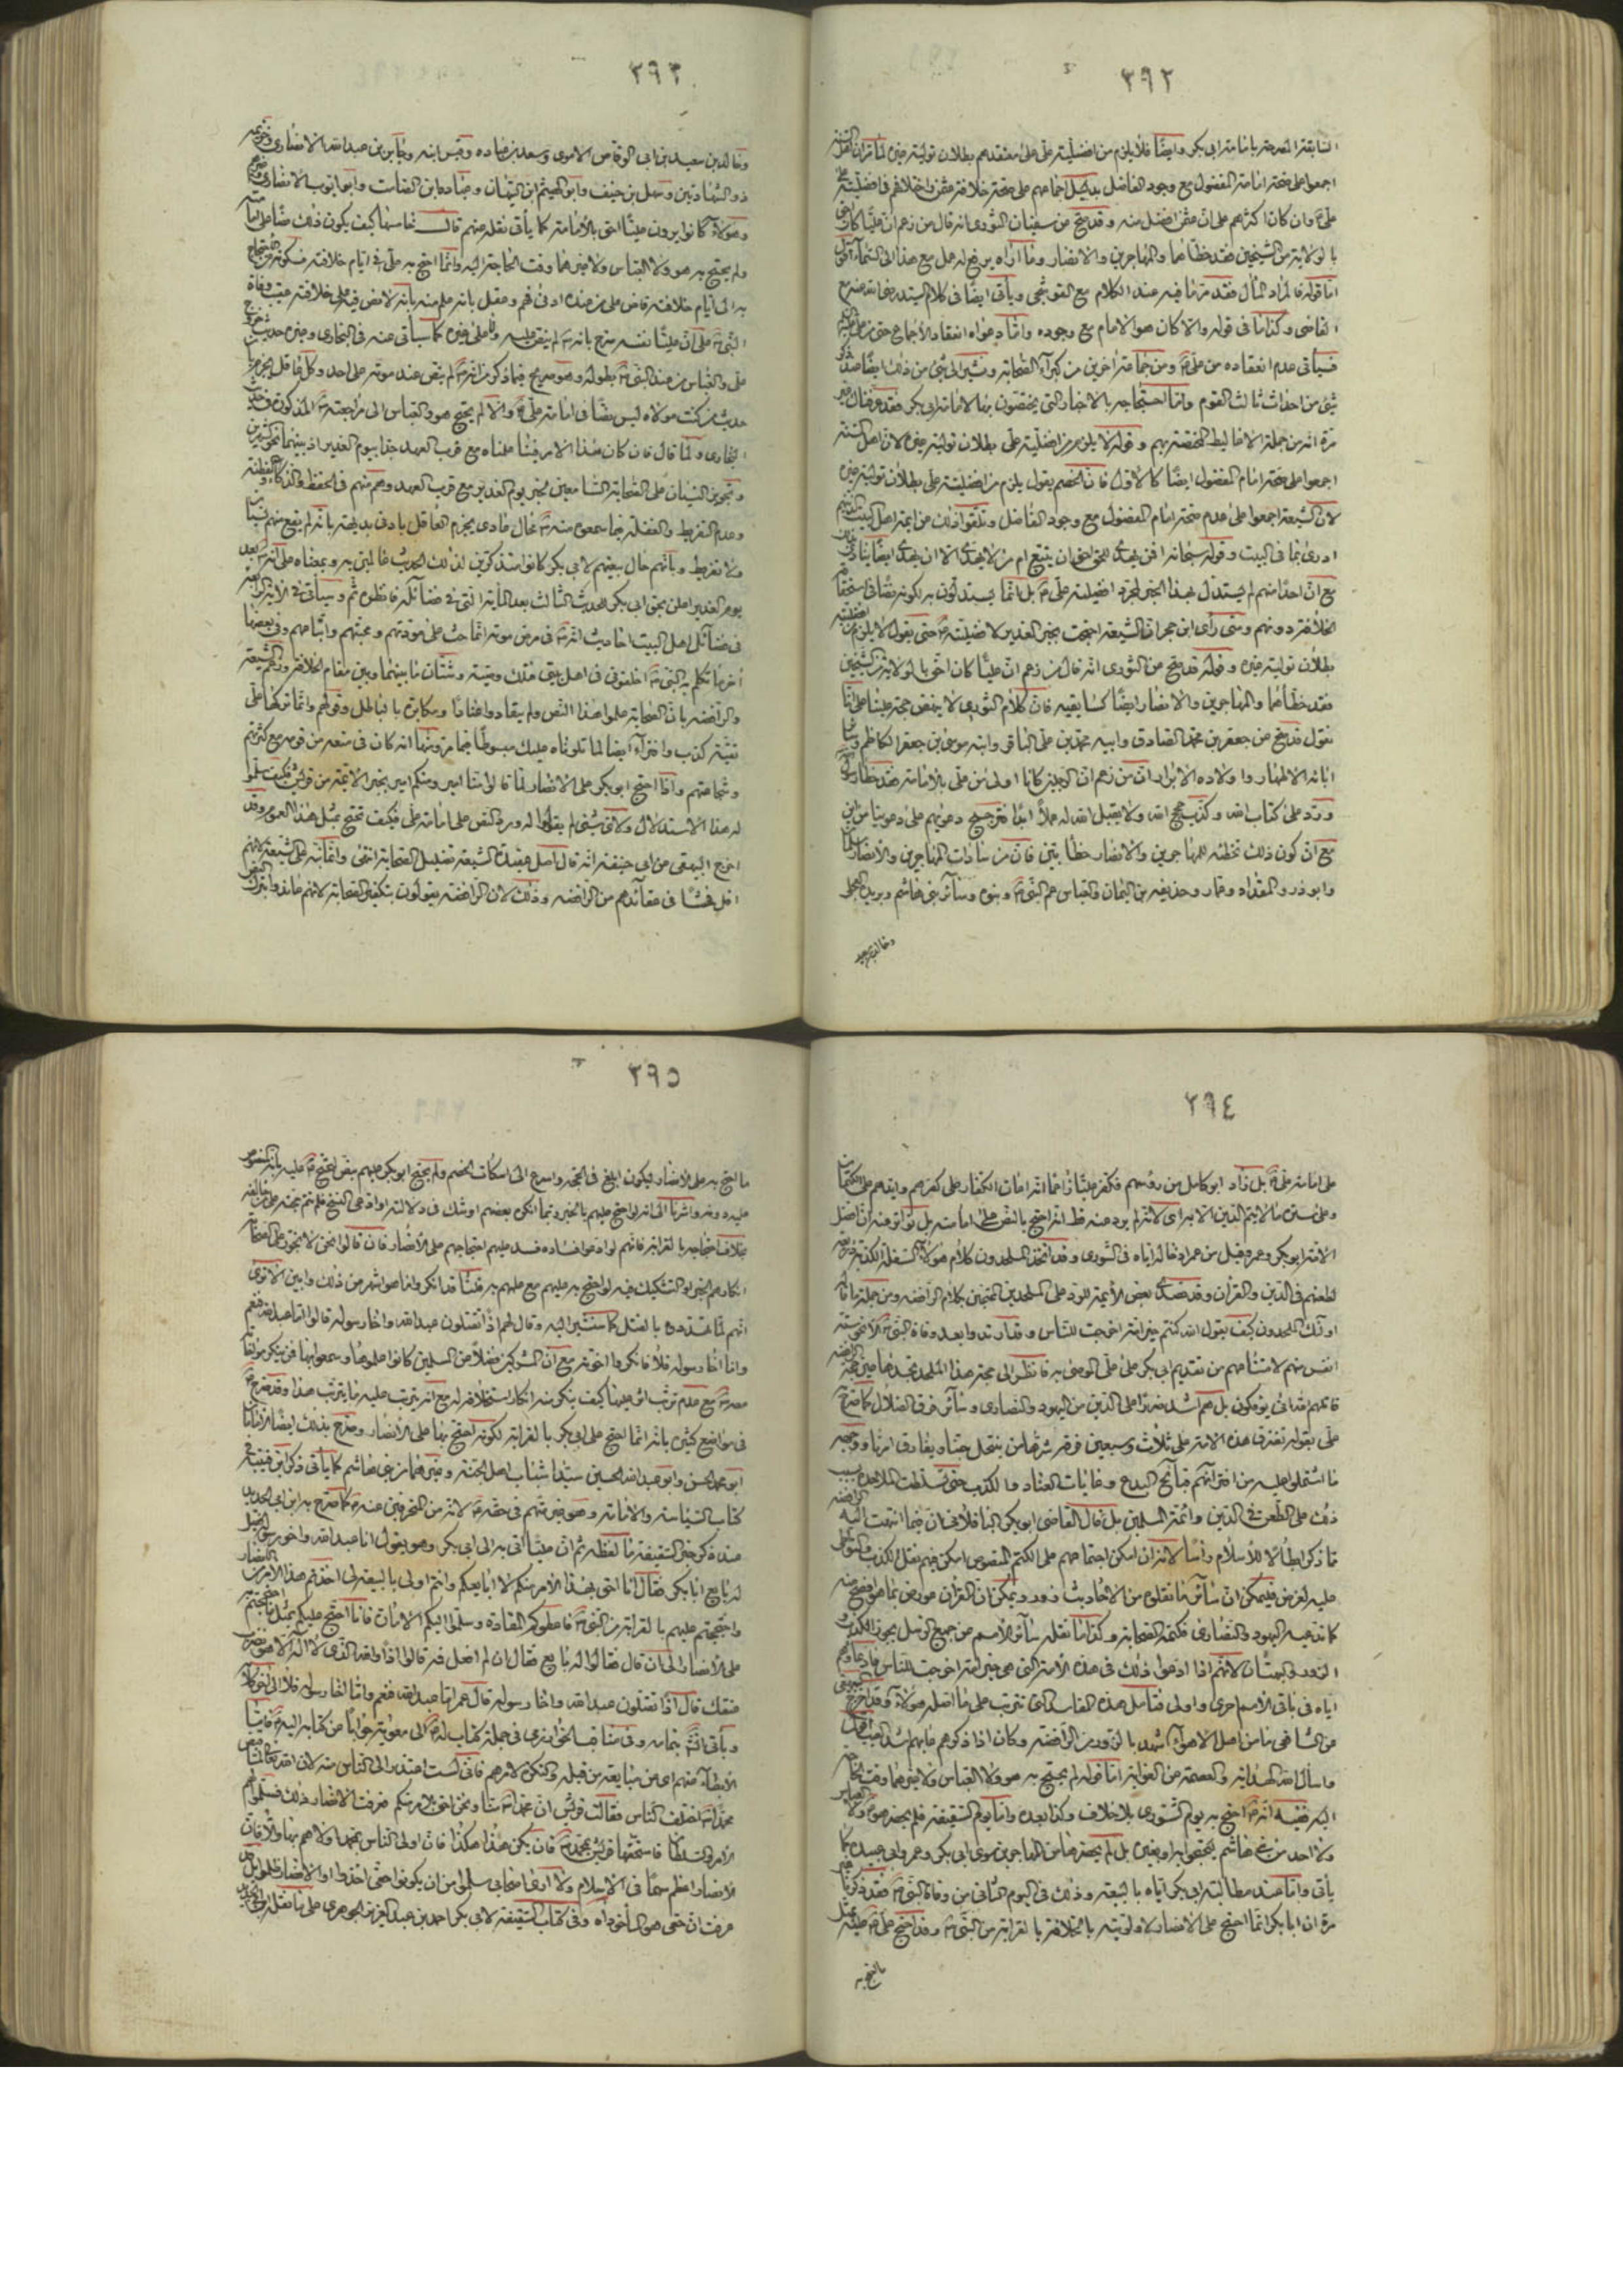 ٣٩٢
السابقة المصرحة بامامة ابى بكر وايضًا فلا يلزم من افضليته على معتقدهم بطلان تولية غيره لما مر ان اهل السنة
اجمعوا على صحة امامة المفضول مع وجود الفاضل بدليل اجماعهم على صحة خلافة عثمن واختلافهم فى افضليته على
علىّ وان كان اكثرهم على ان عثمن افضل منه وقد صح عن سفيان الثورى انه قال من زعم ان عليًّا كان احق
بالولاية من الشيخين فقد خطأهما والمهاجرين والانصار وما اراه يرفع له عمل مع هذا الى السماء اقول
اما قوله فالمراد المأل فقد مر ما فيه عند الكلام مع القوشجى ويأتى ايضًا فى كلام السيد رضى الله عنه مع
القاضى وكذا ما فى قوله والا كان هو الامام مع وجوده واما دعواه انعقاد الاجماع حتى من على عليه
فسيأتى عدم انعقاده من على ومن جماعة اخرين من كبراء الصحابة ونشير الى شئ من ذلك ايضًا عند ذكر
شئ من احداث ثالث القوم واما احتجاجه بالاخبار التى يختصون بها لامامة ابى بكر فقد عرفت
مرة انه من جملة الاغاليط المختصة بهم وقوله لا يلزم من افضليته على بطلان تولية غيره لان اهل السنة
اجمعوا على صحة امام المفضول ايضًا كالاول فان الخصم يقول يلزم من افضليته على بطلان تولية غيره
لان الشيعة اجمعوا على عدم صحة امام المفضول مع وجود الفاضل وتلقوا ذلك من ائمة اهل البيت
ادرى بما فى البيت وقوله سبحانه افمن يهدى للحق احق ان يتبع ام من لا يهدى الا ان يهدى ايضًا
مع ان احدًا منهم لم يستدل بهذا الخبر لمجرد افضليته على بل انما يستدلون به لكونه نصًا فى استحقاق
الخلافة دونهم ومتى رأى ابن حجر ان الشيعة احتجت بخبر الغدير لافضليته حتى يقول لا يلزم من
بطلان تولية غيره وقوله قد صح عن الثورى انه قال من زعم ان عليًّا كان احق بالولاية من الشيخين
فقد خطأهما والمهاجرين والانصار ايضًا كسابقيه فان كلام الثورى لا ينهض حجة علينا على انا
نقول قد صح عن جعفر بن محمد الصادق وابيه محمد بن على الباقر وابنه موسى بن جعفر الكاظم
ابائه الاطهار واولاده الابرار ان من زعم ان الرجلين كانا اولى من على بالامامة فقد خطأ رسول
وردّ على كتاب الله وكذب حجج الله ولا يقبل الله له عملًا ابدًا فترجيح دعويهم على دعوينا من اين
مع ان كون ذلك تخطئة للمهاجرين والانصار خطأ بيّن فان من سادات المهاجرين والانصار
وابو ذر والمقداد وعمار وحذيفه بن اليمان والعباس عم النبى وبنوه وسائر بنى هاشم وبريدة
وخالد بن سعيد
٣٩٣
وخالد بن سعيد بن ابى الوقاص الاموى وسعد بن عباده وقيس ابنه وجابر بن عبد الله الانصارى وخزيمه
ذو الشهادتين وسهل بن حنيف وابو الهيثم ابن التيهان وعباده ابن الصامت وابو ايوب الانصارى
وهؤلاء كانوا يرون عليًّا احق بالامامة كما يأتى نقله عنهم قال خامسها كيف يكون ذلك نصًا على امامته
ولم يحتج به هو ولا العباس ولا غيرهما وقت الحاجة اليه وانما احتج به على فى ايام خلافته فسكوته
به الى ايام خلافته قاض على من عنده ادنى فهم وعقل بانه علم منه بانه لا نص فيه على خلافته عقب وفاة
النبى على ان عليًّا نفسه صرح بانه لم ينص عليه ولا على غيره كما سيأتى عنه فى البخارى وغيره حديث
على والعباس من عند النبى بطوله وهو صريح فيما ذكر من انه لم ينص عند موته على احد وكل عاقل يجزم
حديث من كنت مولاه ليس نصًا فى امامة على والا لم يحتج هو والعباس الى مراجعته المذكورة
البخارى ولما قال فان كان هذا الامر فينا علمناه مع قرب العهد جدا بيوم الغدير اذ بينهما نحو شهرين
وتجويز النسيان على الصحابة السامعين لخبر يوم الغدير مع قرب العهد وهم هم فى الحفظ والذكاء والفطنة
وعدم التفريط والغفلة فيما سمعوه منه محال عادى يجزم العاقل بادنى بديهته بانه لم يقع منهم نسيان
ولا تفريط وبانهم حال بيعتهم لابى بكر كانوا متذكرين لذلك الحديث عالمين به وبمعناه على انه بعد
يوم الغدير اعلن بحق ابى بكر للحديث الثالث بعد المأية التى فى فضائله فانظره ثم وسيأتى فى الاية
فى فضائل اهل البيت احاديث انه فى مرض موته انما حث على مودتهم ومحبتهم واتباعهم وفى بعضها
أخر ما تكلم به النبى اخلفونى فى اهل بيتى فتلك وصية وشتان ما بينهما وبين مقام الخلافة وزعم الشيعة
والرافضه بان الصحابة علموا هذا النص ولم ينقادوا عنادًا ومكابرة بالباطل وقولهم وانما تركها على
تقية كذب وافتراء ايضا لما تلوناه عليك مبسوطًا فيما مر ومنها انه كان فى منعه من قومه مع كثرتهم
وشجاعتهم ولذا احتج ابو بكر على الانصار لما قالوا منا امير ومنكم امير بخبر الائمة من قريش فكيف سلموا
له هذا الاستدلال ولاى شئ لم يقولوا له ورد النص على امامة على فكيف تحتج بمثل هذا العموم وقد
اخرج البيهقى عن ابى حنيفة انه قال اصل عقيدة الشيعة تضليل الصحابة انتهى وانما نبه على الشيعة لانهم
اقل فحشًا فى عقائدهم من الرافضه وذلك لان الرافضه يقولون بتكفير الصحابة لانهم عاندوا بترك النص
٣٩٤
على امامة على بل زاد ابو كامل من رؤسهم فكفر عليًّا زاعمًا انه اعان الكفار على كفرهم وايدهم على الكتمان
وعلى ستر ما لا يتم الدين الا به اى لانه لم يرو عنه قط انه احتج بالنص على امامته بل تواتر عنه ان افضل
الامة ابو بكر وعمر وقبل من عمر ادخاله اياه فى الشورى وقد اتخذ الملحدون كلام هؤلاء السفلة الكذبة ذريعة
لطعنهم فى الدين والقرآن وقد تصدى بعض الائمة للرد على الملحدين المحتجين بكلام الرافضه ومن جملة ما قاله
اولئك الملحدون كيف يقول الله كنتم خير امة اخرجت للناس وقد ارتدوا بعد وفاة النبى الا نحو ستة
انفس منهم لامتناعهم من تقديم ابى بكر على على الموصى به فانظر الى حجة هذا الملحد تجدها عين حجة
قاتلهم الله انى يؤفكون بل هم اشد ضررًا على الدين من اليهود والنصارى وسائر فرق الضلال كما صرح
على بقوله تفترق هذه الامة على ثلاث وسبعين فرقه شرها من ينتحل حبنا ويفارق امرنا ووجهه
ما اشتملوا عليه من افترائهم قبائح البدع وغايات العناد والكذب حتى تسلطت الملاحدة بسبب
ذلك على الطعن فى الدين وائمة المسلمين بل قال القاضى ابو بكر الباقلانى ان فيما ذهبت اليه
مما ذكر ابطالا للاسلام رأسا لانه ان امكن اجتماعهم على الكتم للنصوص امكن فيهم نقل الكذب
عليه لغرض فيمكن ان سائر ما نقلوه من الاحاديث زور ويمكن ان القرآن عورض بما هو افصح منه
كما تدعيه اليهود والنصارى فكتمه الصحابة وكذا ما نقله سائر الامم عن جميع الرسل يجوز الكذب
الزور والبهتان لانهم اذا ادعوا ذلك فى هذه الامة التى هى خير امة اخرجت للناس فادعاؤهم
اياه فى باقى الامم احرى واولى فتأمل هذه المفاسد التى تترتب على ما اصله هؤلاء وقد اخرج البيهقى
عن الشافعى ما من اهل الاهواء اشهد بالزور من الرافضه وكان اذا ذكرهم عابهم اشد العيب اقول
واسأل الله الهداية والعصمة من الغواية اما قوله لم يحتج به هو ولا العباس ولا غيرهما وقت الحاجة
اليه ففيه انه احتج به يوم الشورى بلا خلاف وكذا بعده واما يوم السقيفة فلم يحضر هو ولا العباس
ولا احد من بنى هاشم ليحتجوا به او بغيره بل لم يحضرها من المهاجرين سوى ابى بكر وعمر وابى عبيده كما
يأتى واما عند مطالبته ابى بكر اياه بالبيعة وذلك فى اليوم الثانى من وفاة النبى فقد ذكرنا غير
مرة ان ابا بكر انما احتج على الانصار لاولويته بالخلافة بالقرابة من النبى وقد احتج على عليه بمثل
ما احتج به
٣٩٥
ما احتج به على الانصار ليكون ابلغ فى الحجة واسرع الى اسكات الخصم ولم يحتج ابو بكر عليهم بنص ليحتج عليه بانه المنصوص
عليه دونه واشرنا الى انه لو احتج عليهم بالخبر ربما انكره بعضهم او شك فى دلالته او ادعى النسخ فلم تتم حجته على
بخلاف احتجاجه بالقرابة فانهم لو ادعوا فساده فسد عليهم احتجاجهم على الانصار فان قالوا نحن لا نجوز على الصحابة
انكارهم الخبر او التشكيك فيه لو احتج به عليهم مع علمهم به قلنا قد انكروا ما هو اشهر من ذلك وابين الا ترى
انهم لما تهددوه بالقتل كما سنشير اليه وقال لهم اذًا تقتلون عبد الله واخا رسوله قالوا اما عبد الله فنعم
واما اخا رسوله فلا فانكروا اخوته مع ان المشركين فضلًا عن المسلمين كانوا علموها وسمعوا بها فمن ينكر مؤاخاة
معه مع عدم ترتب اثر عليها كيف ينكر منه انكار استخلافه له مع انه يترتب عليه ما يترتب هذا وقد صرح
فى مواضع كثيرة بانه انما احتج على ابى بكر بالقرابة لكونه احتج بها على الانصار وصرح بذلك ايضًا ابنائه
ابو محمد الحسن وابو عبد الله الحسين سيدا شباب اهل الجنة وغيرهما من بنى هاشم كما يأتى ذكر ابن قتيبة فى
كتاب السياسة والامامة وهو غير متهم فى حقه لانه من المنحرفين عنه كما صرح به ابن ابى الحديد
عند ذكر خبر السقيفة ما لفظه ثم ان عليًّا اتى به الى ابى بكر وهو يقول انا عبد الله واخو رسول الله فقيل
له بايع ابا بكر فقال انا احق بهذا الامر منكم لا ابايعكم وانتم اولى بالبيعة لى اخذتم هذا الامر من الانصار
واحتججتم عليهم بالقرابة من النبى فاعطوكم المقادة وسلموا اليكم الامارة فانا احتج عليكم بمثل ما احتججتم
على الانصار الى ان قال فقالوا له بايع فقال ان لم افعل فمه قالوا اذًا والله الذى لا اله الا هو نضرب
عنقك قال اذًا تقتلون عبد الله واخا رسوله قال عمر اما عبد الله فنعم واما اخا رسوله فلا الى اخر كلامه
ويأتى ان بتمامه وفى مناقب الخوارزمى فى جملة كتاب له الى معوية جوابًا من كتابه اليه
الابطاء عنهم اى عن مبايعة من قبله والكره لامرهم فانى لست اعتذر الى الناس منه لان الله تعالى لما قبض
محمدًا اختلف الناس فقالت قريش ان محمدًا منا ونحن احق بالامر منكم فعرفت الانصار ذلك فسلموا لهم
الامر والسلطان فاستحقتها قريش بمحمد فان يكن هذا هكذا فان اولى الناس بمحمد اولاهم بها والا فان
الانصار اعظم سهمًا فى الاسلام ولا ارى اصحابى سلموا من ان يكونوا حقى اخذوا او الانصار ظلموا بل
عرفت ان حقى هو المأخوذ اه وفى كتاب السقيفة لابى بكر احمد بن عبد العزيز الجوهرى على ما نقله ابن ابى الحديد